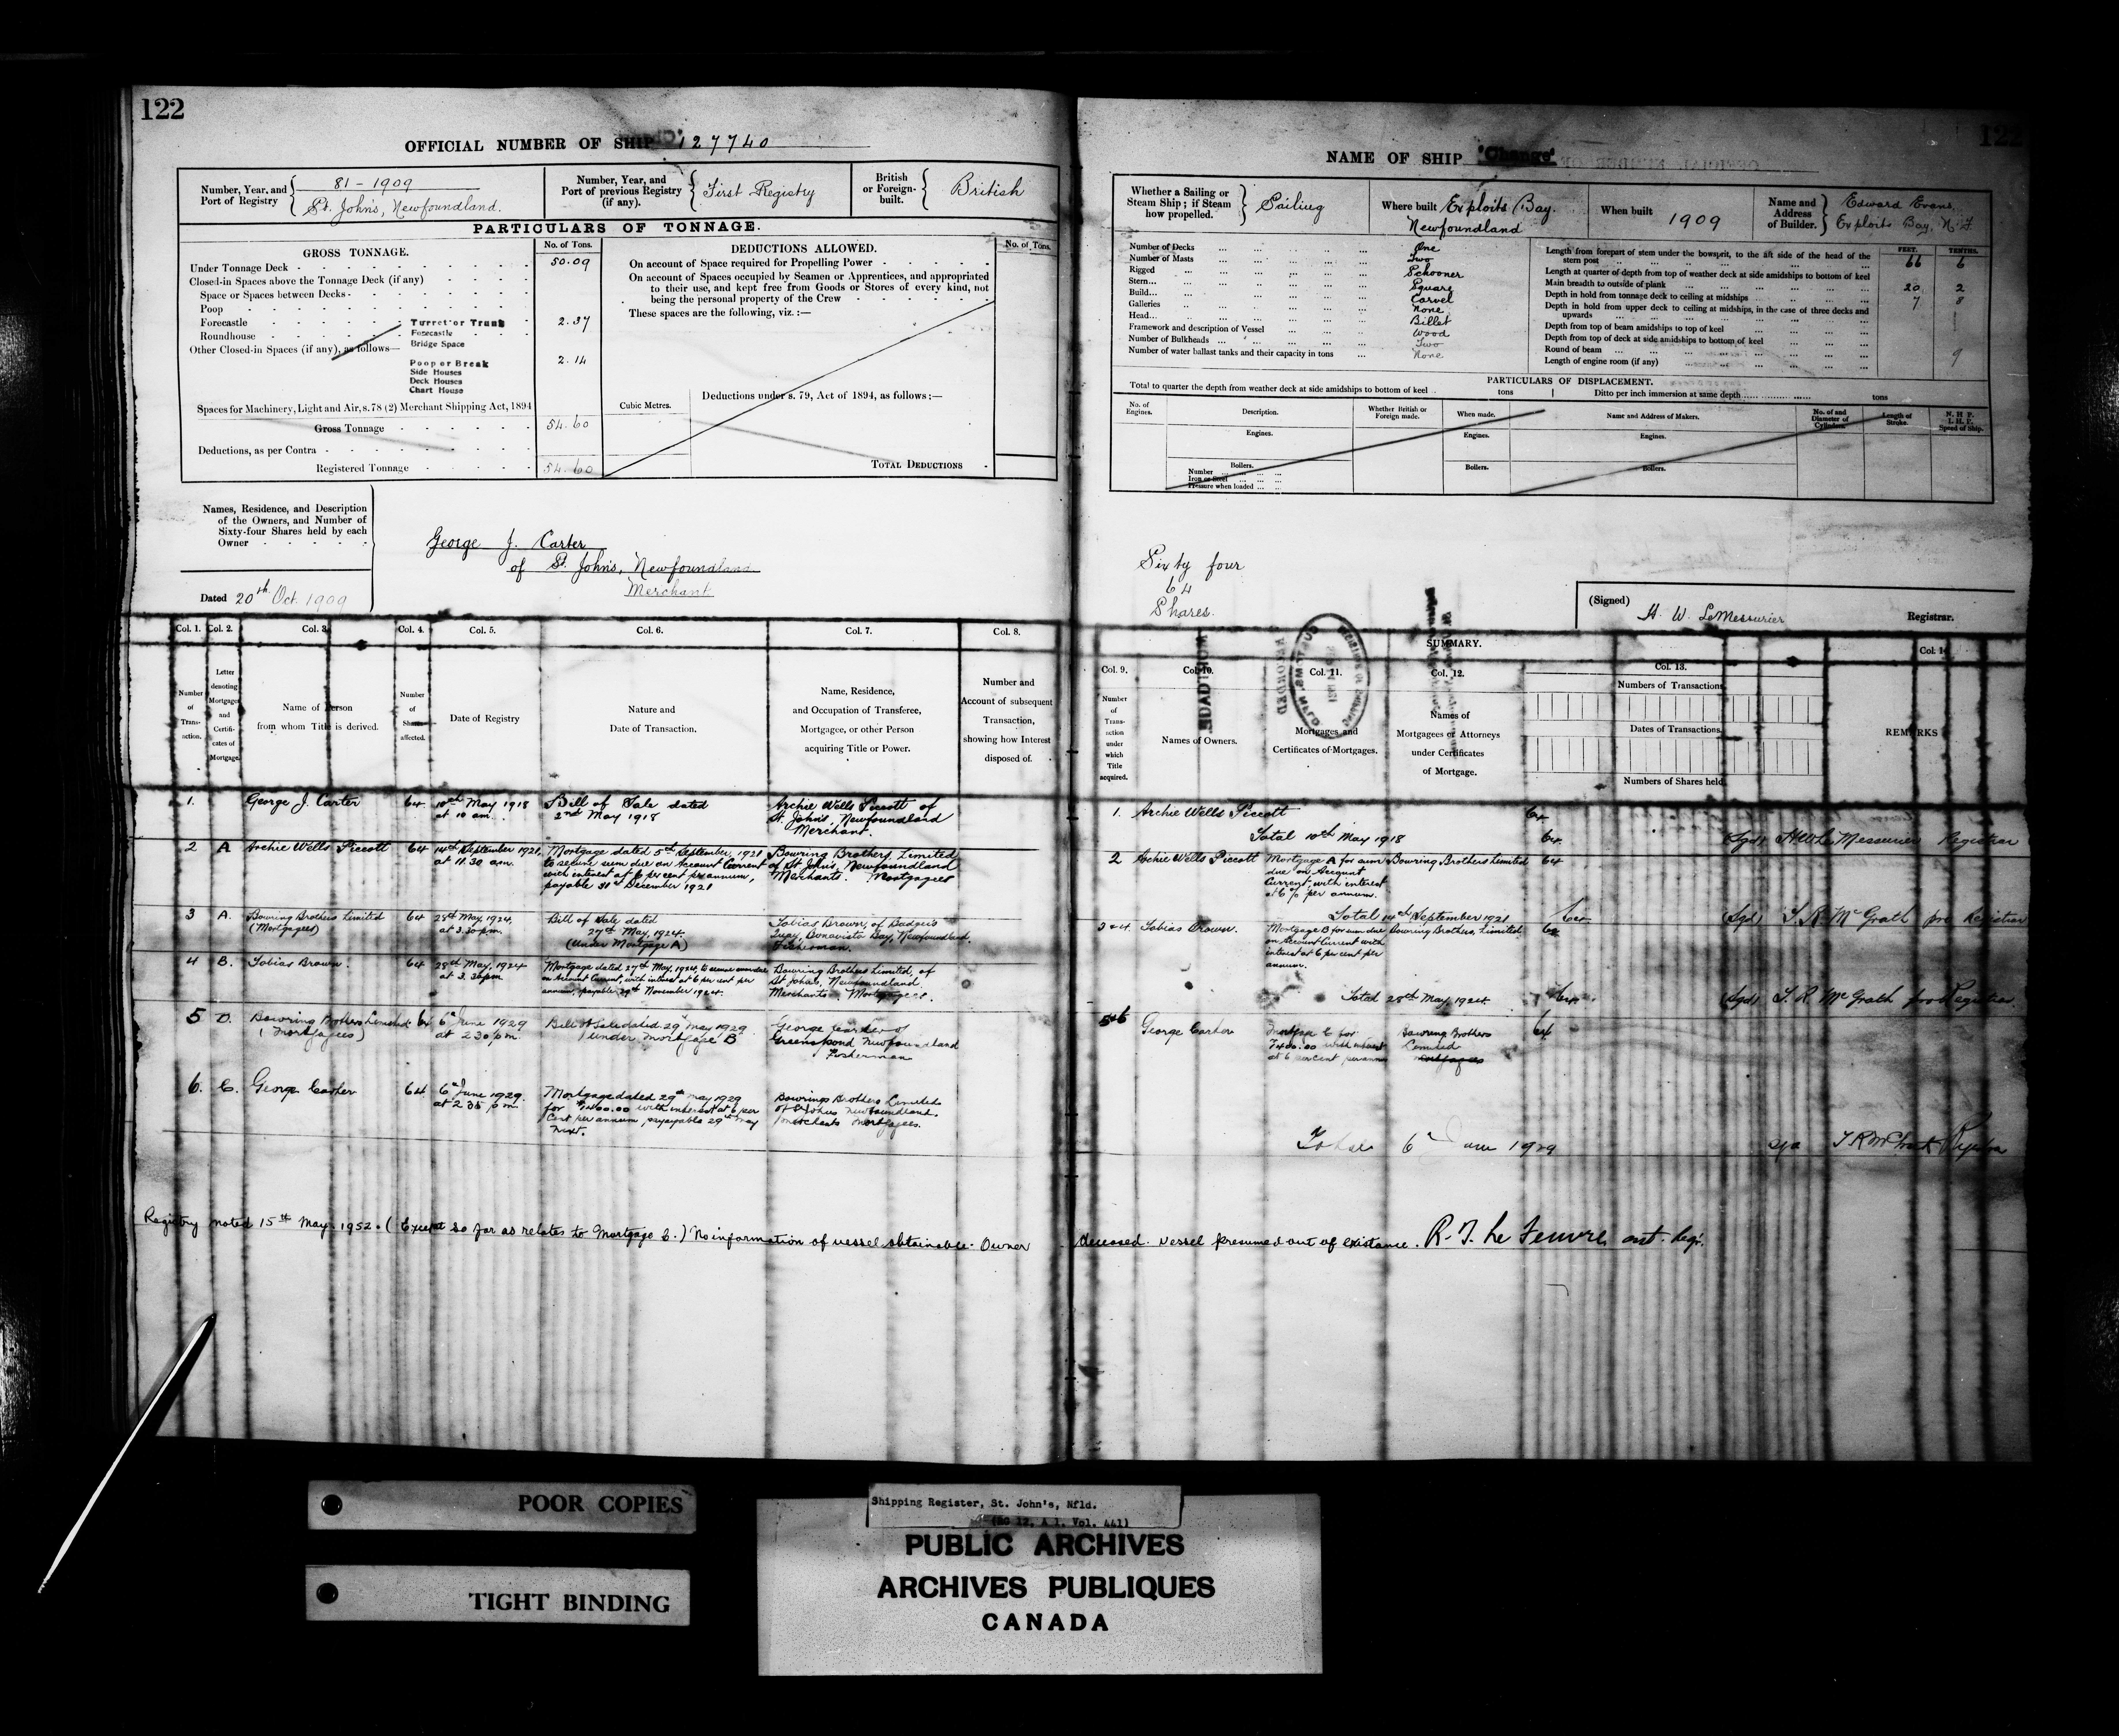 122
OFFICIAL NUMBER OF SHIP 127740
Number, Year, and Port of Registry
81 - 1909
St. John's, Newfoundland.
Number, Year, and Port of previous Registry (if any).
First Registry
British or Foreign-built.
British
PARTICULARS OF TONNAGE.
GROSS TONNAGE.
No. of Tons.
Under Tonnage Deck 50.09
Closed-in Spaces above the Tonnage Deck (if any)
Space or Spaces between Decks
Poop
Forecastle
Roundhouse
Other Closed-in Spaces (if any), as follows—
Turret or Trunk 2.37
Forecastle
Bridge Space
Poop or Break 2.14
Side Houses
Deck Houses
Chart House
Spaces for Machinery, Light and Air, s. 78 (2) Merchant Shipping Act, 1894
Gross Tonnage 54.60
Deductions, as per Contra
Registered Tonnage 54.60
DEDUCTIONS ALLOWED.
No. of Tons.
On account of Space required for Propelling Power
On account of Spaces occupied by Seamen or Apprentices, and appropriated
to their use, and kept free from Goods or Stores of every kind, not
being the personal property of the Crew
These spaces are the following, viz.:—
Cubic Metres.
Deductions under s. 79, Act of 1894, as follows:—
TOTAL DEDUCTIONS
Names, Residence, and Description
of the Owners, and Number of
Sixty-four Shares held by each
Owner
Dated 20th Oct. 1909
George J. Carter
of St. John's, Newfoundland
Merchant
Col. 1. Col. 2. Col. 3. Col. 4. Col. 5. Col. 6. Col. 7. Col. 8.
Number of Trans-action.
Letter denoting Mortgages and Certifi-cates of Mortgage.
Name of Person from whom Title is derived.
Number of Shares affected.
Date of Registry
Nature and Date of Transaction.
Name, Residence, and Occupation of Transferee, Mortgagee, or other Person acquiring Title or Power.
Number and Account of subsequent Transaction, showing how Interest disposed of.
1. George J. Carter 64 10th May 1918 at 10 am. Bill of Sale dated 2nd May 1918 Archie Wells Piccott of St. John's, Newfoundland Merchant.
2 A Archie Wells Piccott 64 14th September 1921, at 11.30 am. Mortgage dated 5th September, 1921 to secure sum due on Account Current with interest at 6 per cent per annum, payable 31st December 1921 Bowring Brothers, Limited of St John's, Newfoundland Merchants. Mortgagees
3 A. Bowring Brothers Limited (Mortgagees) 64 28th May, 1924, at 3.30pm. Bill of Sale dated 27th May, 1924. (Under Mortgage A) Tobias Brown, of Badger's Quay, Bonavista Bay, Newfoundland. Fisherman.
4 B. Tobias Brown. 64 28th May, 1924 at 3.30pm Mortgage dated 27th May, 1924, to secure sum due on Account Current, with interest at 6 per cent per annum, payable 29th November 1924. Bowring Brothers Limited, of St John's, Newfoundland Merchants. Mortgagees.
5 Bowring Brothers Limited (Mortgagees) 64 6th June 1929 at 2 30 p.m. Bill of Sale dated 29th May 1929 under Mortgage B George Carter of Greenspond Newfoundland Fisherman
6. C. George Carter 64 6th June 1929 at 2 35 p.m. Mortgage dated 29th May 1929 for $1400.00 with interest at 6 per Cent per annum, payable 29th May next. Bowring Brothers Limited of St Johns Newfoundland. Merchants Mortgagees.
Registry noted 15th May. 1952. (Except so far as relates to Mortgage C.) No information of vessel obtainable. Owner
122
NAME OF SHIP "Change"
Whether a Sailing or Steam Ship; if Steam how propelled.
Sailing
Where built Exploits Bay. Newfoundland
When built 1909
Name and Address of Builder.
Edward Evans, Exploits Bay, N.F.
Number of Decks One
Number of Masts Two
Rigged Schooner
Stern Square
Build Carvel
Galleries None
Head Billet
Framework and description of Vessel Wood
Number of Bulkheads Two
Number of water ballast tanks and their capacity in tons None
FEET. TENTHS.
Length from forepart of stem under the bowsprit, to the aft side of the head of the stern post 66 6
Length at quarter of depth from top of weather deck at side amidships to bottom of keel
Main breadth to outside of plank 20 2
Depth in hold from tonnage deck to ceiling at midships 7 8
Depth in hold from upper deck to ceiling at midships, in the case of three decks and upwards
Depth from top of beam amidships to top of keel
Depth from top of deck at side amidships to bottom of keel
Round of beam 9
Length of engine room (if any)
PARTICULARS OF DISPLACEMENT.
Total to quarter the depth from weather deck at side amidships to bottom of keel tons
Ditto per inch immersion at same depth tons
No. of Engines.
Description.
Whether British or Foreign made.
When made.
Name and Address of Makers.
No. of and Diameter of Cylinders.
Length of Stroke.
N. H. P. I. H. P. Speed of Ship.
Engines. Engines. Engines.
Boilers. Boilers. Boilers.
Number
Iron or Steel
Pressure when loaded
Sixty four
64
Shares.
(Signed) H. W. LeMessurier Registrar.
SUMMARY.
Col. 9. Col. 10. Col. 11. Col. 12. Col. 13. Col. 14
Number of Trans-action under which Title acquired.
Names of Owners.
Mortgages and Certificates of Mortgages.
Names of Mortgagees or Attorneys under Certificates of Mortgage.
Numbers of Transactions
Dates of Transactions.
Numbers of Shares held
REMARKS
1. Archie Wells Piccott 64
Total 10th May 1918 64 (Sgd) H W Le Messurier Registrar
2 Archie Wells Piccott Mortgage A for sum due on Account Current, with interest at 6% per annum. Bowring Brothers Limited 64
Total 14th September 1921 64 (Sgd) T. R. McGrath pro Registrar
3 & 4. Tobias Brown. Mortgage B for sum due on Account Current with interest at 6 per cent per annum. Bowring Brothers, Limited 64
Total 28th May, 1924. 64 (Sgd) T. R. McGrath pro Registrar.
5&6 George Carter Mortgage C for $1400.00 with interest at 6 percent per annum Bowring Brothers Limited Mortgagees 64
Total 6th June 1929 sgd T R McGrath Registrar
deceased. Vessel presumed out of existance. R. T. Le Feuvre, ast. Regr.
POOR COPIES
TIGHT BINDING
Shipping Register, St. John's, Nfld.
(RG 12, A 1, Vol. 441)
PUBLIC ARCHIVES
ARCHIVES PUBLIQUES
CANADA